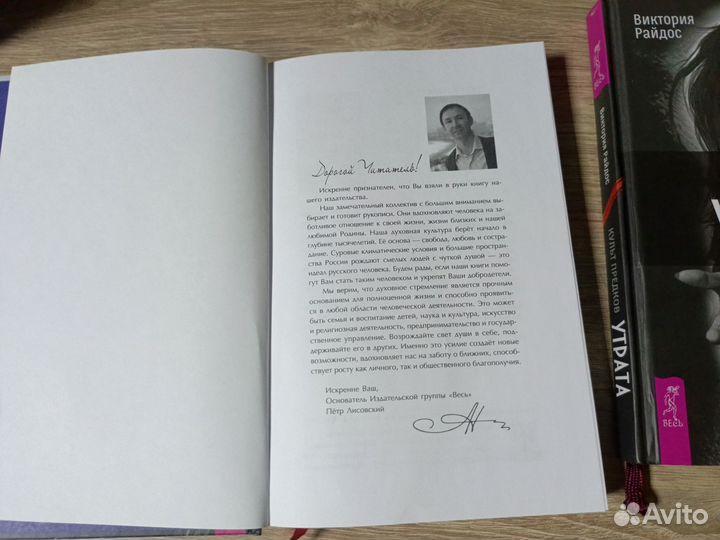 Дорогой Читатель!
Искренне признателен, что Вы взяли в руки книгу на-
шего издательства.
Наш замечательный коллектив с большим вниманием вы-
бирает и готовит рукописи. Они вдохновляют человека на за-
ботливое отношение к своей жизни, жизни близких и нашей
любимой Родины. Наша духовная культура берёт начало в
глубине тысячелетий. Её основа — свобода, любовь и состра-
дание. Суровые климатические условия и большие простран-
ства России рождают смелых людей с чуткой душой — это
идеал русского человека. Будем рады, если наши книги помо-
гут Вам стать таким человеком и укрепят Ваши добродетели.
Мы верим, что духовное стремление является прочным
основанием для полноценной жизни и способно проявить-
ся в любой области человеческой деятельности. Это может
быть семья и воспитание детей, наука и культура, искусство
и религиозная деятельность, предпринимательство и государ-
ственное управление. Возрождайте свет души в себе, под-
держивайте его в других. Именно это усилие создаёт новые
возможности, вдохновляет нас на заботу о ближних, способ-
ствует росту как личного, так и общественного благополучия.
Искренне Ваш,
Основатель Издательской группы «Весь»
Пётр Лисовский
Виктория Райдос
КУЛЬТ ПРЕДКОВ
УТРАТА
Виктория
Райдос
ВЕСЬ
Avito